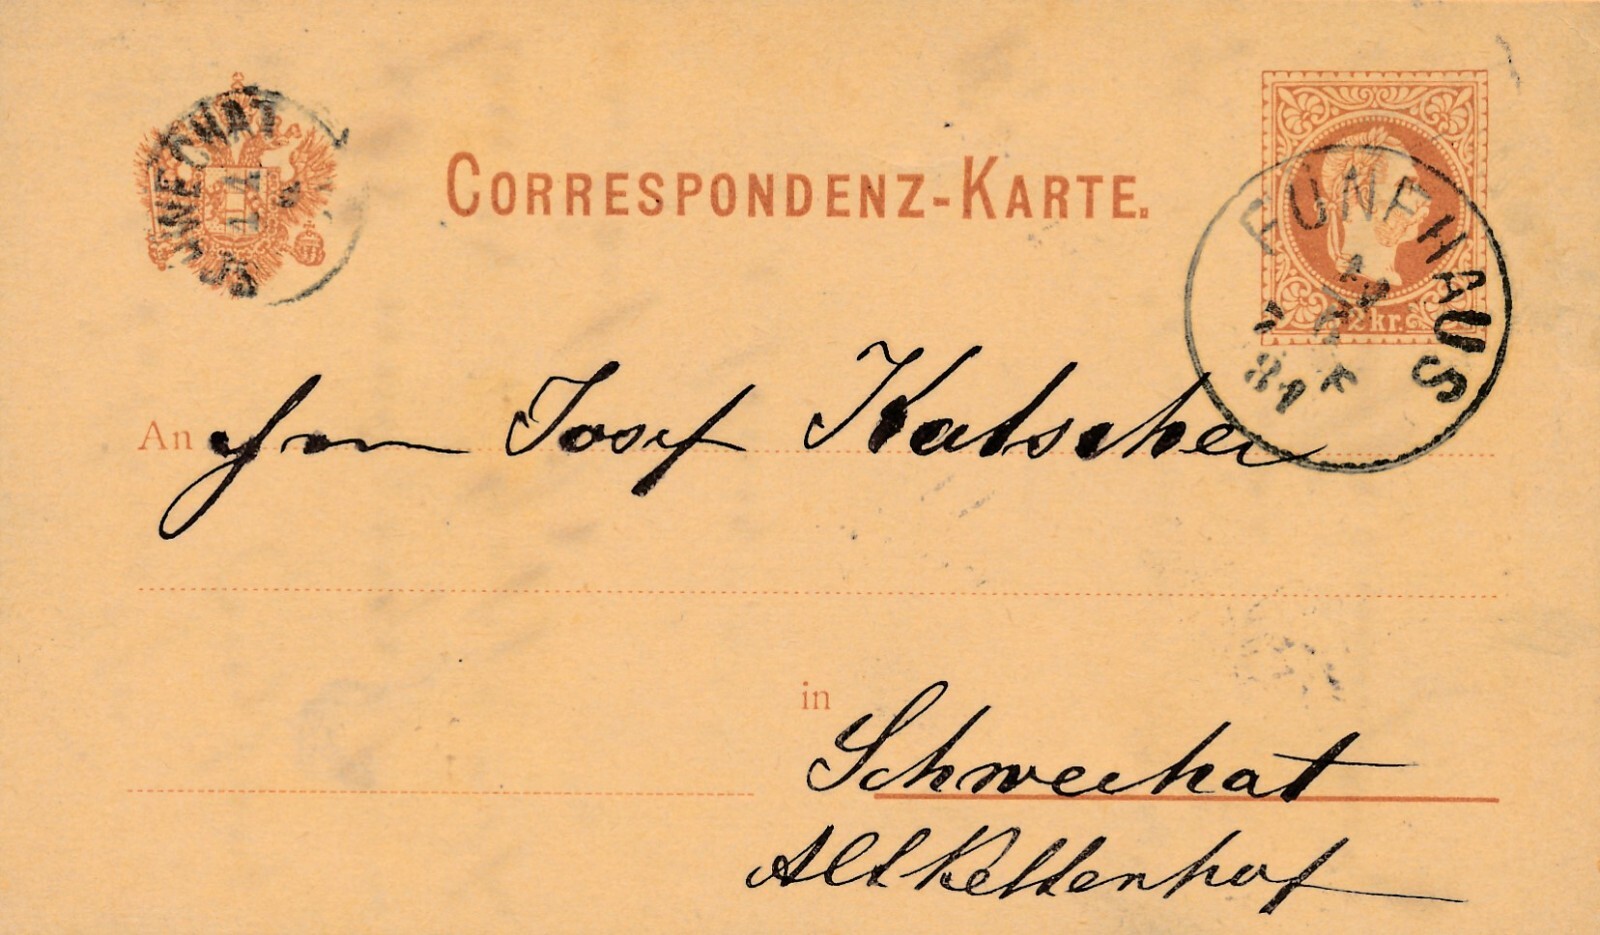 CORRESPONDENZ-KARTE.
SCHWECHAT
FÜNFHAUS
81
2 kr.
An Hrn Josef Katscher
in
Schwechat
Altkettenhof